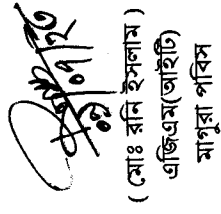 ( মোঃ রনি ইসলাম )
এজিএম(আইটি)
মাগুরা পবিস